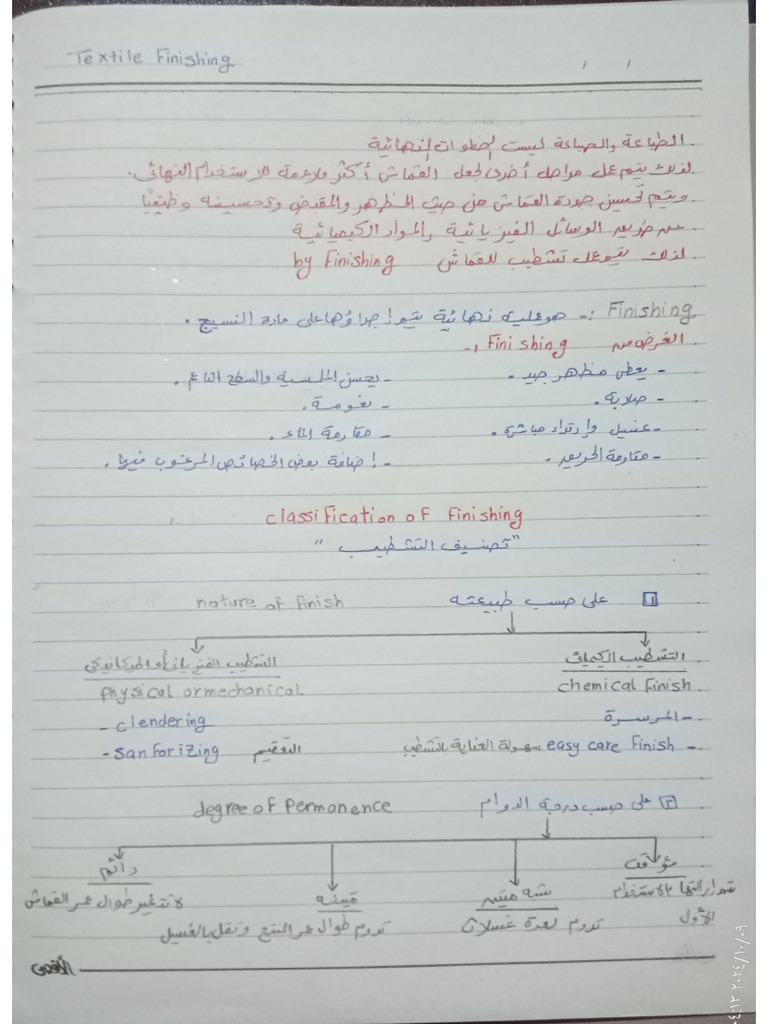 Textile Finishing
/ /
الطباعة والصباغة ليست الخطوات النهائية
لذلك يتم عمل مراحل أخرى لجعل القماش أكثر ملاءمة للاستخدام النهائى.
ويتم تحسين جودة القماش من حيث المظهر والمقبض وتحسينه وظيفيًا
عن طريق الوسائل الفيزيائية والمواد الكيميائية
لذلك يتم عمل تشطيب للقماش by Finishing
Finishing :- هو عملية نهائية يتم إجراؤها على مادة النسيج .
الغرض من Finishing :-
- يعطى مظهر جيد. - يحسن الملمسية والسطح الناعم .
- صلابة. - نعومة.
- غسيل وإرتداء مباشرة. - مقاومة الماء.
- مقاومة الحريق. - إضافة بعض الخصائص المرغوب فيها.
classification of Finishing
"تصنيف التشطيب"
1 على حسب طبيعته nature of finish
التشطيب الكيميائى التشطيب الفيزيائى أو الميكانيكى
chemical finish physical or mechanical
- المرسرة - clendering
- easy care finish سهولة العناية بالتشطيب - sanforizing التعقيم
٢ على حسب درجة الدوام degree of Permanence
مؤقت شبه متين متينه دائم
تتم ازالتها بالاستخدام الأول تدوم لعدة غسلات تدوم طوال عمر المنتج وتقل بالغسيل لا تتغير طوال عمر القماش
الأقصى
٢٠٢٤/١٠/٠٩